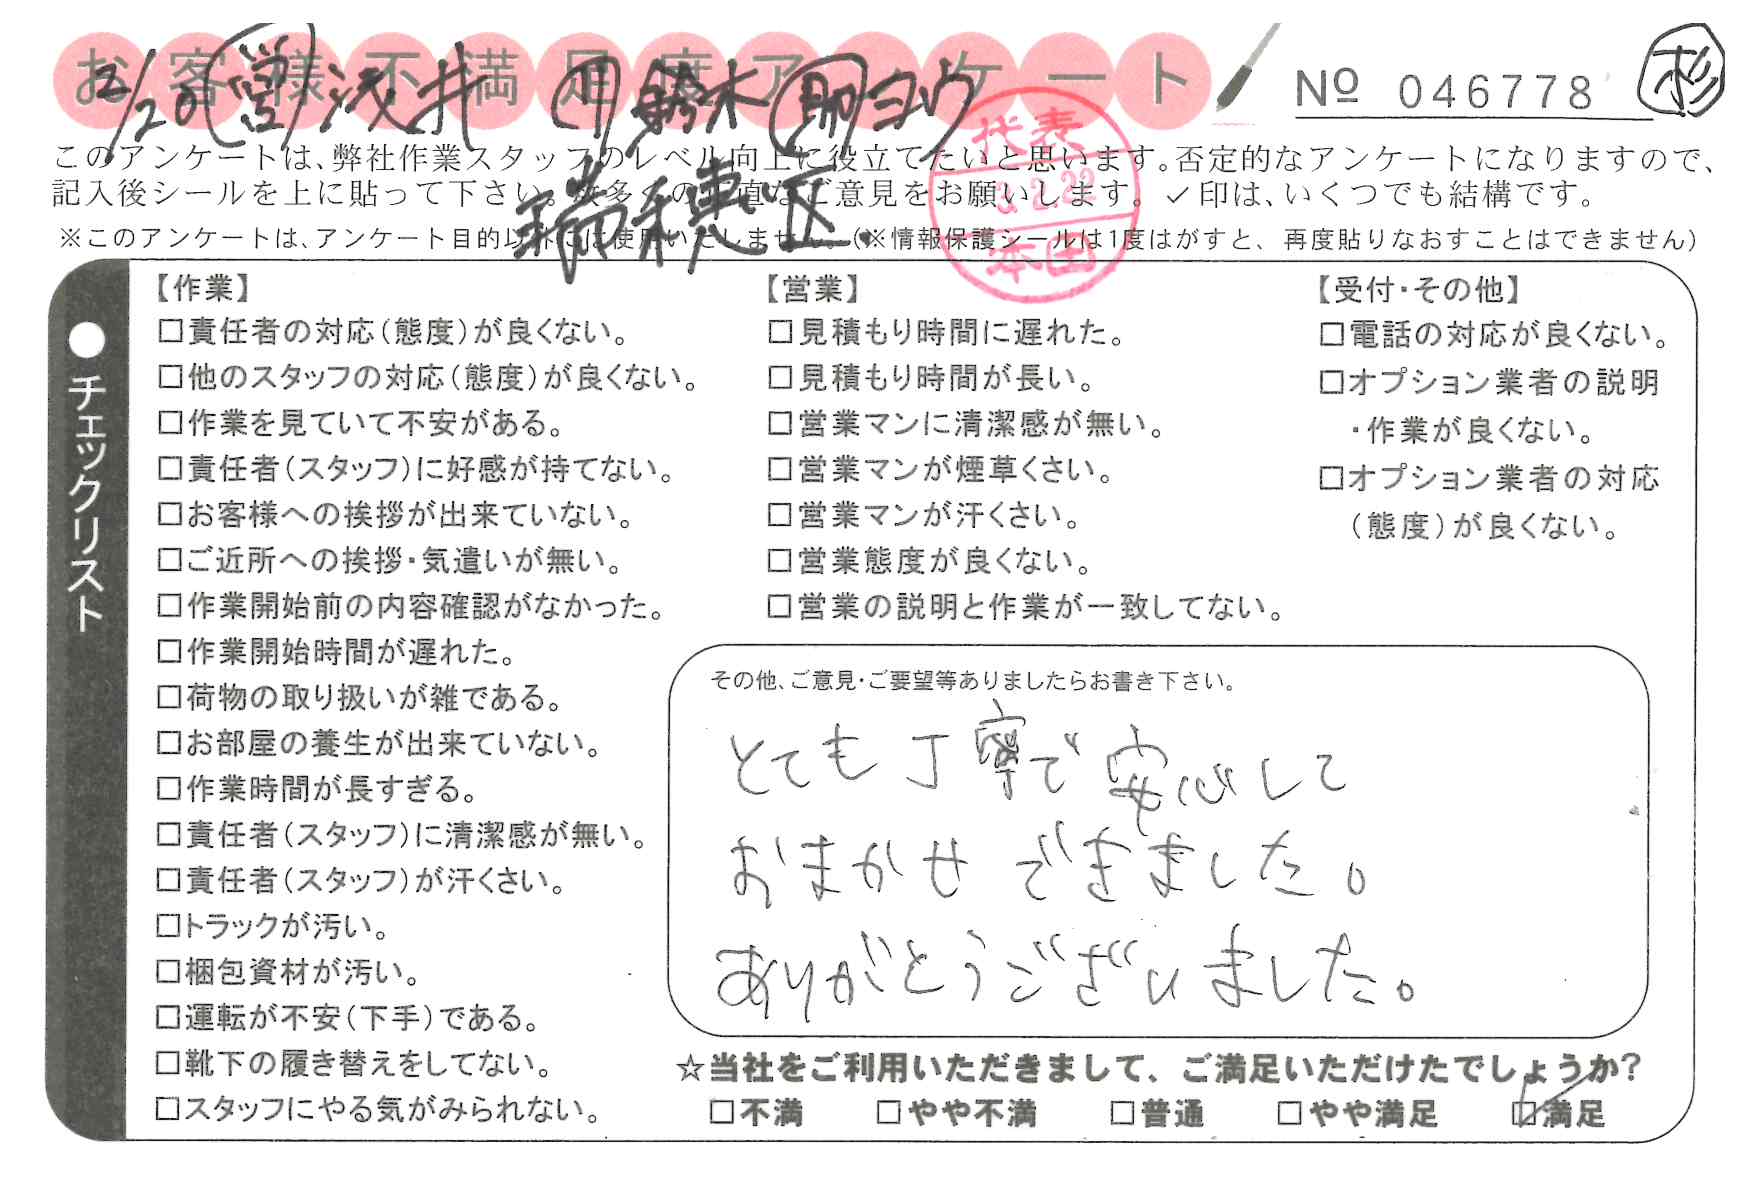 お客様不満足度アンケート
№ 046778
杉
2/20 営 浅井 鈴木 ヨウ
瑞穂区
代表
3.2.22
本田
このアンケートは、弊社作業スタッフのレベル向上に役立てたいと思います。否定的なアンケートになりますので、
記入後シールを上に貼って下さい。数多くの正直なご意見をお願いします。✓印は、いくつでも結構です。
※このアンケートは、アンケート目的以外には使用いたしません。(※情報保護シールは1度はがすと、再度貼りなおすことはできません)
●チェックリスト
【作業】
□責任者の対応(態度)が良くない。
□他のスタッフの対応(態度)が良くない。
□作業を見ていて不安がある。
□責任者(スタッフ)に好感が持てない。
□お客様への挨拶が出来ていない。
□ご近所への挨拶・気遣いが無い。
□作業開始前の内容確認がなかった。
□作業開始時間が遅れた。
□荷物の取り扱いが雑である。
□お部屋の養生が出来ていない。
□作業時間が長すぎる。
□責任者(スタッフ)に清潔感が無い。
□責任者(スタッフ)が汗くさい。
□トラックが汚い。
□梱包資材が汚い。
□運転が不安(下手)である。
□靴下の履き替えをしてない。
□スタッフにやる気がみられない。
【営業】
□見積もり時間に遅れた。
□見積もり時間が長い。
□営業マンに清潔感が無い。
□営業マンが煙草くさい。
□営業マンが汗くさい。
□営業態度が良くない。
□営業の説明と作業が一致してない。
【受付・その他】
□電話の対応が良くない。
□オプション業者の説明
・作業が良くない。
□オプション業者の対応
(態度)が良くない。
その他、ご意見・ご要望等ありましたらお書き下さい。
とても丁寧で安心して
おまかせできました。
ありがとうございました。
☆当社をご利用いただきまして、ご満足いただけたでしょうか?
□不満 □やや不満 □普通 □やや満足 ☑満足